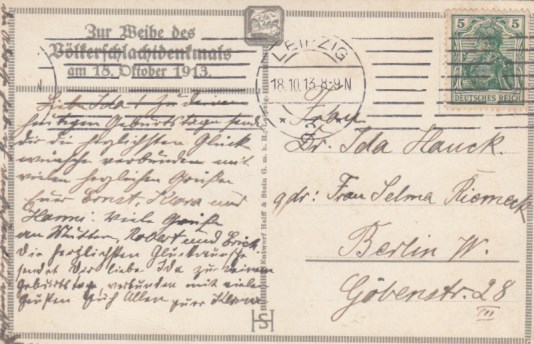 Zur Weihe des
Völkerschlachtdenkmals
am 18. Oktober 1913.
LEIPZIG
18.10.13.8-9N
5 5
DEUTSCHES REICH
Liebe Ida! Zu deinem
heutigen Geburtstage send
dir die herzlichsten Glück
wünsche verbunden mit
vielen herzlichen Grüßen
Euer Ernst, Klara und
Hanni. Viele Grüße
an Mutter, Robert und Erich
Die herzlichsten Glückwünsche
sendet Dir liebe Ida zu deinem
Geburtstag, verbunden mit vielen
Grüßen Euch Allen
Dr. Ida Hauck.
Frau Selma Riemeck
Berlin W.
Göbenstr. 28
III
HS